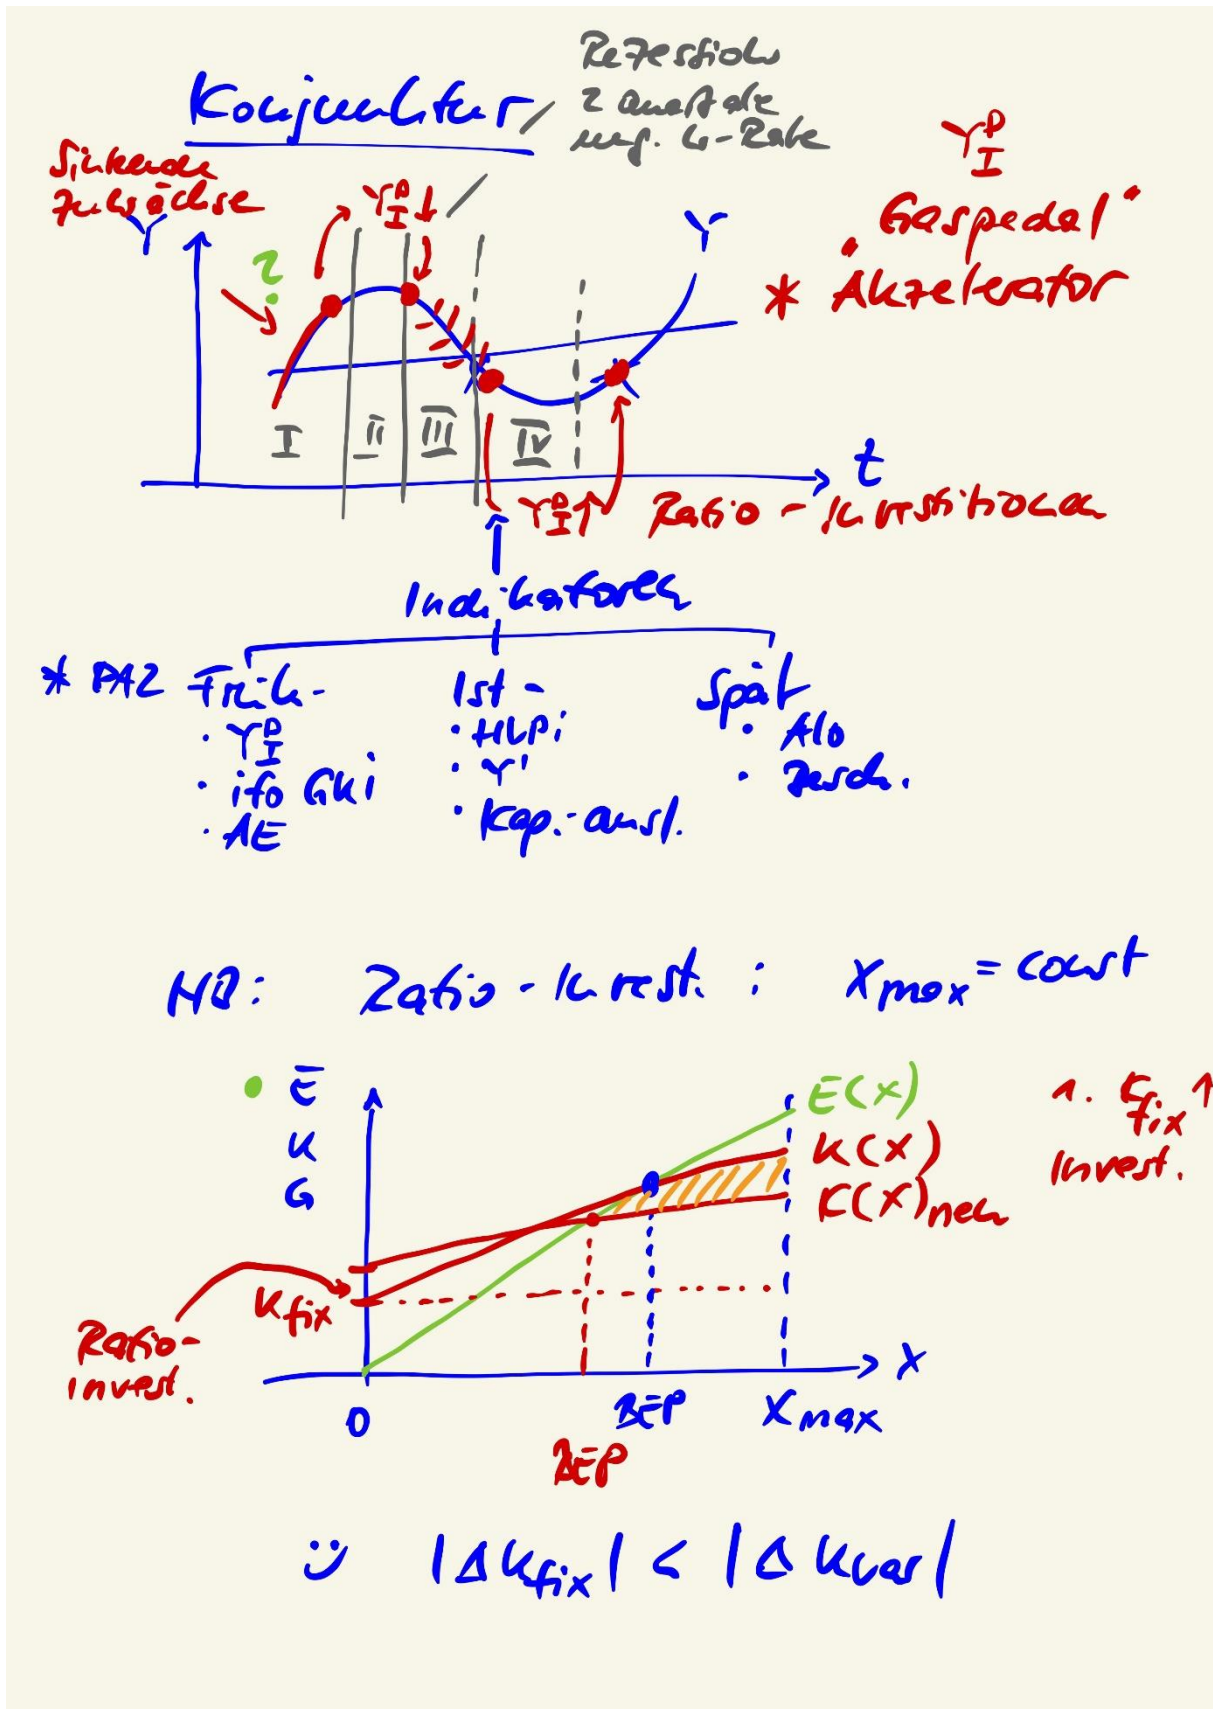 Konjunktur
Rezession
2 Quartale
neg. W-Rate
Sinkende
Zuwächse
Y
?
Y^D_I ↓
Y
Y^D_I
"Gaspedal"
* Akzelerator
I II III IV
t
Y^D_I ↑ Ratio-Investitionen
Indikatoren
* PA2 Früh- Ist- Spät
· Y^D_I · HVPi · Alo
· ifo GKi · Y' · Besch.
· AE · Kap.-ausl.
NB: Ratio-Invest. : Xmax = const
E
K
G
E(x)
K(x)
K(x)neu
1. Kfix ↑
Invest.
Kfix
Ratio-
invest.
0 BEP Xmax x
BEP
|ΔKfix| < |ΔKvar|